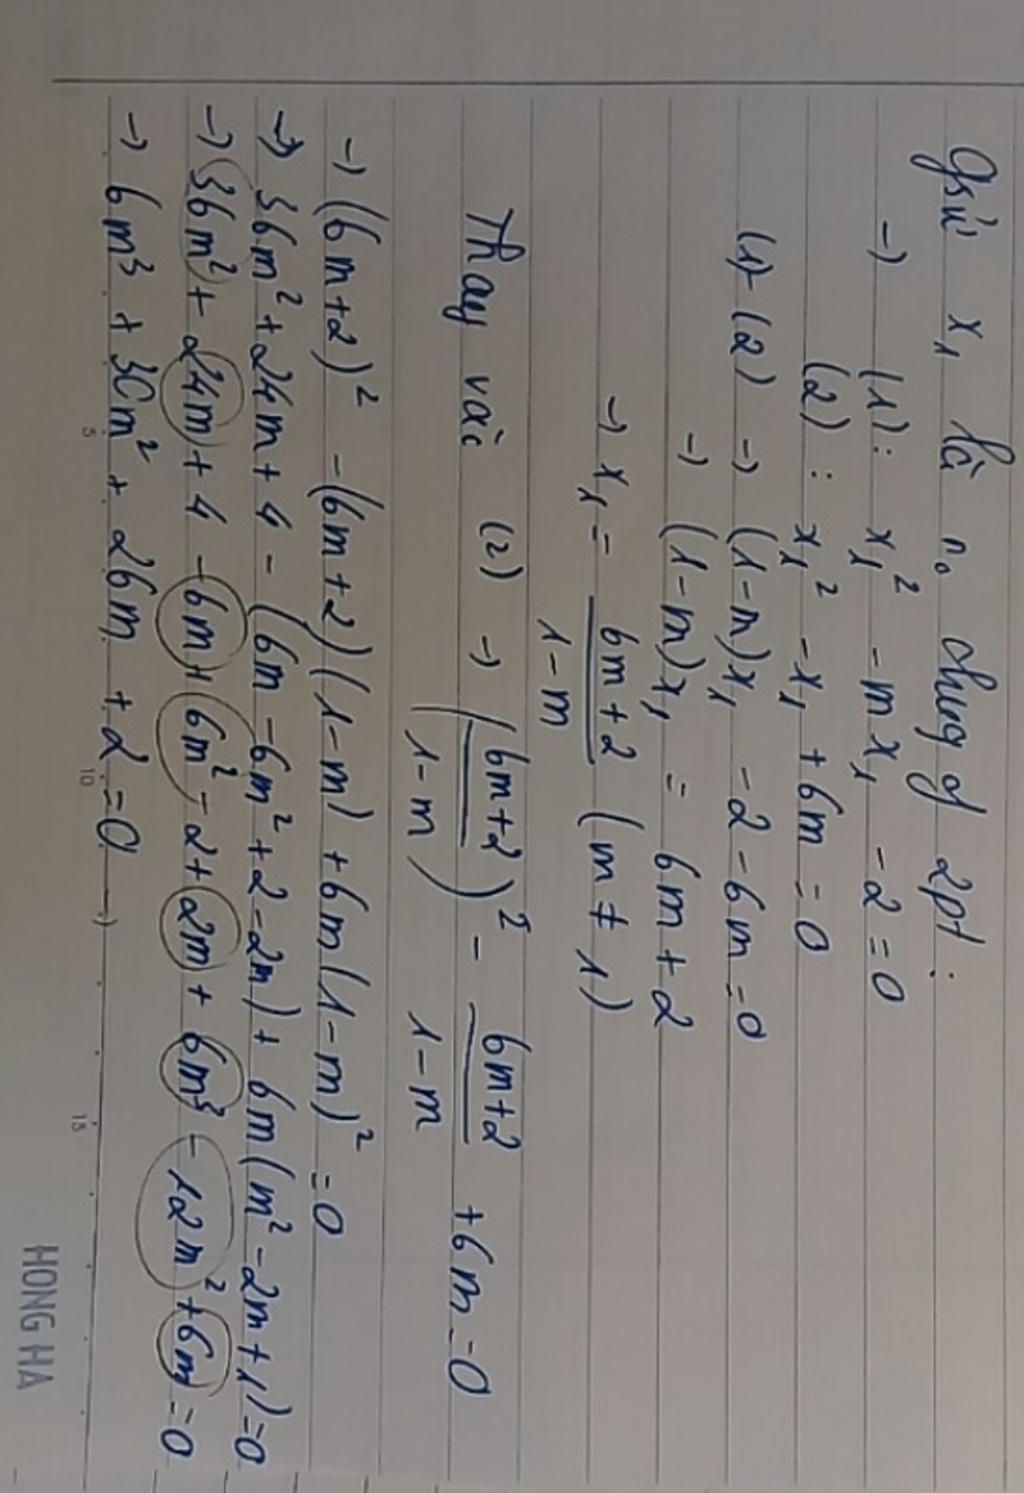 Gsử x₁ là n₀ chung of 2pt:
→ (1): x₁² - mx₁ - 2 = 0
(2): x₁² - x₁ + 6m = 0
(1)-(2) → (1-m)x₁ - 2 - 6m = 0
→ (1-m)x₁ = 6m + 2
→ x₁ = (6m+2)/(1-m) (m ≠ 1)
Thay vào (2) → ((6m+2)/(1-m))² - (6m+2)/(1-m) + 6m = 0
→ (6m+2)² - (6m+2)(1-m) + 6m(1-m)² = 0
→ 36m² + 24m + 4 - (6m - 6m² + 2 - 2m) + 6m(m² - 2m + 1) = 0
→ 36m² + 24m + 4 - 6m + 6m² - 2 + 2m + 6m³ - 12m² + 6m = 0
→ 6m³ + 30m² + 26m + 2 = 0 →
5
10
15
HONG HA